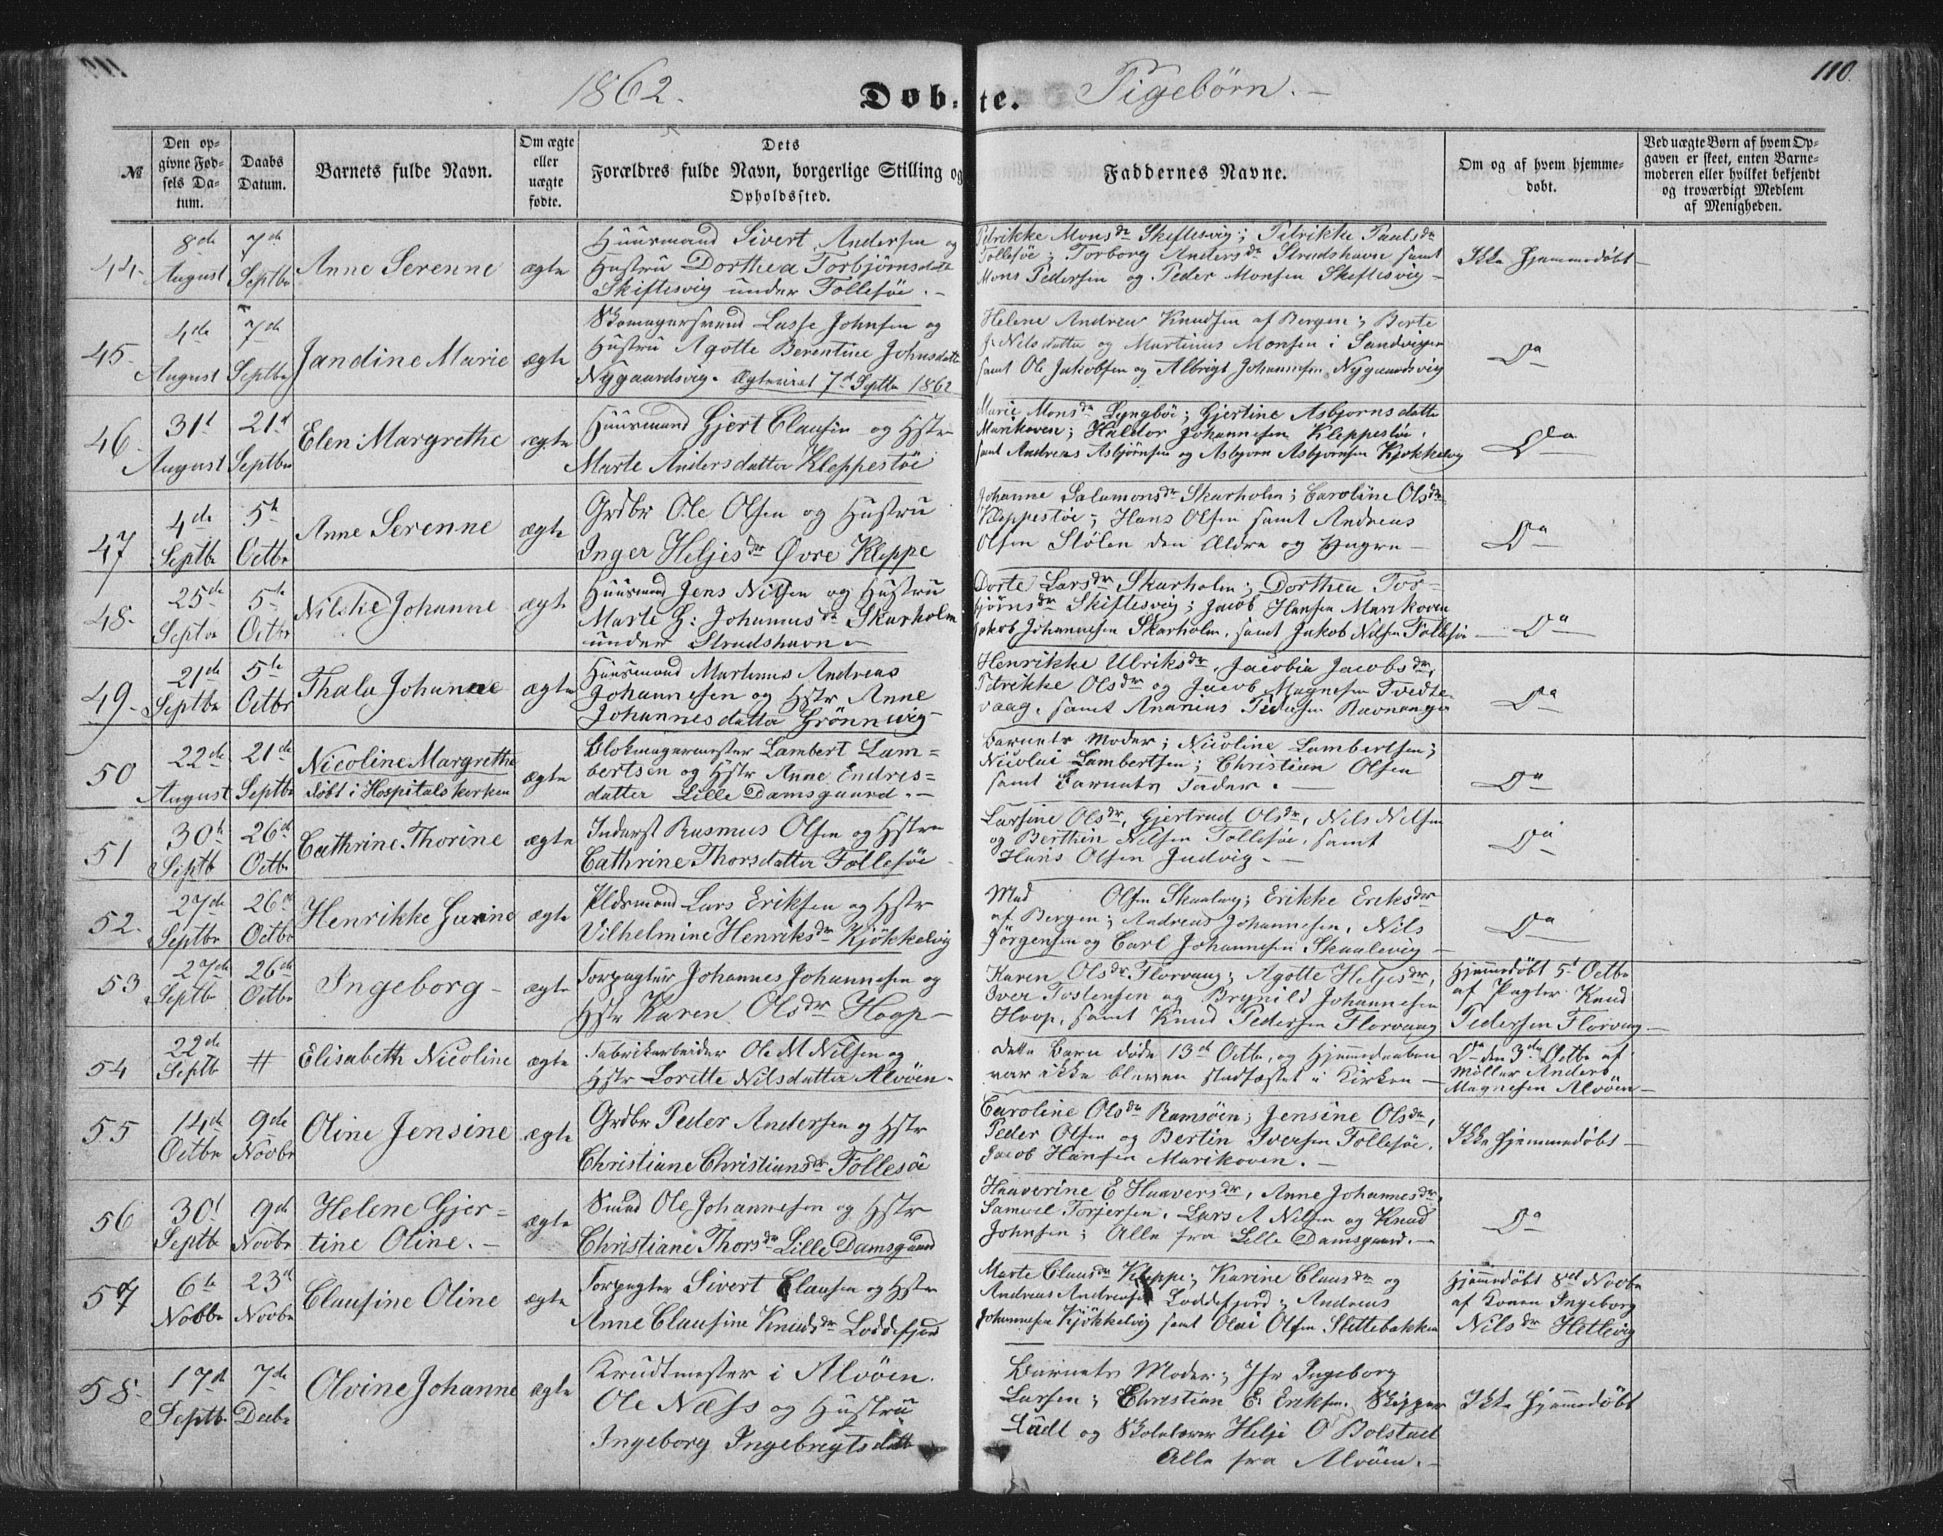 1862.
Døb-te.
Pigebørn. -
110.
№
Den op-
givne Fød-
sels Da-
tum.
Daabs
Datum.
Barnets fulde Navn.
Om ægte
eller
uægte
fødte.
Dets
Forældres fulde Navn, borgerlige Stilling og
Opholdssted.
Faddernes Navne.
Om og af hvem hjemme-
døbt.
Ved uægte Børn af hvem Op-
gaven er skeet, enten Barne-
moderen eller hvilket bekjendt
og troværdigt Medlem
af Menigheden.
44.
8de
August
7de
Septbr
Anne Serenne
ægte
Huusmand Sivert Andersen og
Hustru Dorthea Torbjørnsdatte
Skiftesvig under Follesøe. -
Petrikke Monsdr Skiftesvig; Petrikke Paulsdr
Follesøe; Torborg Andersdr Strudshavn samt
Mons Pedersen og Peder Monsen Skiftesvig -
Ikke Hjemmedøbt
45.
4de
August
7de
Septbr
Jandine Marie
ægte
Skomagersvend Lasse Johnsen og
Hustru Agotte Berentine Johnsdatte
Nygaardsvig. Ægteviet 7d Septbr 1862
Helene Andrea Knudsen af Bergen; Berte
Nilsdatter og Martinus Monsen i Sandvigen
samt Ole Jakobsen og Albrigt Johannesen Nygaardsvig
Do
46.
31t
August
21d
Septbr
Elen Margrethe
ægte
Huusmand Gjert Clausen og Hstr
Marte Andersdatter Kleppestøe
Marie Monsdr Lyngbøe; Gjertine Asbjørnsdatte
Marikoven; Haldor Johannesen Kleppestøe.
samt Andreas Asbjørnsen og Asbjørn Asbjørnsen Kjøkkelvig
Do
47
4de
Septbr
5te
Octbr
Anne Serenne
ægte
Grdbr Ole Olsen og Hustru
Inger Heljesdr Øvre Kleppe
Johanne Salamonsdr Skarholm; Caroline Olsdr
Kleppestøe; Hans Olsen samt Andreas
Olsen Stølen den Ældre og Yngre -
Do
48.
25de
Septbr
5te
Octbr
Nilske Johanne
ægte
Huusmand Jens Nilsen og Hustru
Marte H: Johannesdr Skarholm
under Strudshavn
Dorte Larsdr Skarholm; Dorthea Tor-
bjørnsdr Skiftesvig; Jacob Hansen Marikoven
Jakob Johannesen Skarholm, samt Jakob Nilsen Follesøe
Do
49.
21de
Septbr
5te
Octbr
Thala Johanne
ægte
Huusmand Martinus Andreas
Johannesen og Hstr Anne
Johannesdatter Grönnevig
Henrikke Ulriksdr, Jacobia Jacobsdr,
Petrikke Olsdr og Jacob Magnesen Tvedte-
vaag. samt Ananias Pedersen Ravnanger
Do
50
22de
August
21de
Septbr
Nicoline Margrethe
døbt i Hospitalskirken
ægte
Blokmagermester Lambert Lam-
bertsen og Hstr Anne Endres-
datter Lille Damsgaard. -
Barnets Moder; Nicoline Lambertsen;
Nicolai Lambertsen; Christian Olsen
samt Barnets Fader. -
Do
51
30te
Septb
26d
Octbr
Cathrine Thorine
ægte
Inderst Rasmus Olsen og Hstr
Cathrine Thorsdatter Follesøe
Larsine Olsdr, Gjertrud Olsdr, Nils Nilsen
og Berthin Nilsen Follesøe, samt
Hans Olsen Judvig. -
Do
52.
27de
Septbr
26de
Octbr
Henrikke Gurine
ægte
Lars Eriksen og Hstr
Vilhelmine Henriksdr Kjøkkelvig
Mad Olsen Skaalevig; Erikke Eriksdr
af Bergen; Andreas Johannesen, Nils
Jörgensen og Carl Johannesen Skaalevig -
Do
53
27de
Septbr
26de
Octbr
Ingeborg -
ægte
Torpagter Johannes Johannesen og
Hstr Karen Olsdr Hoop -
Karen Olsdr Florvaag; Agotte Heljesdr,
Iver Tostensen og Brynild Johannesen
Hoop, samt Knud Pedersen Florvaag
Hjemmedøbt 5t Octbr
af Pagter Knud
Pedersen Florvaag -
54
22de
Septb
#
Elisabeth Nicoline
ægte
Fabrikarbeider Ole M Nilsen og
Hstr Lorette Nilsdatter Alvöen.
Dette Barn døde 13de Octbr, og Hjemmedaaben
var ikke bleven stadfæstet i Kirken -
Do den 3de Octbr af
Møller Anders
Magnesen Alvöen -
55
14de
Octbr
9de
Novbr
Oline Jensine
ægte
Grdbr Peder Andersen og Hstr
Christiane Christiansdr Follesöe
Caroline Olsdr Ramsöen; Jensine Olsdr,
Peder Olsen og Bertin Iversen Follesöe,
Jacob Hansen Marikoven. -
Ikke Hjemmedøbt -
56
30t
Septbr
9de
Novbr
Helene Gjer-
tine Oline. -
ægte
Smed Ole Johannesen og Hstr
Christiane Thorsdr Lille Damsgaard
Haaverine E Haaversdr, Anne Johannesdr,
Samuel Torjersen, Lars A Nilsen og Knud
Johnsen; Alle fra Lille Damsgaard. -
Do
57
6te
Novbr
23d
Novbr
Clausine Oline
ægte
Torpagter Sivert Clausen og Hstr
Anne Clausine Knudsdr Loddefjord
Marte Clausdr Kleppe; Karine Clausdr og
Andreas Andreasen Loddefjord; Andreas
Johannesen Kjøkkelvig samt Olai Olsen Slettebakken
Hjemmedøbt 8de Novbr
af Konen Ingeborg
Nilsdr Hetlevig
58.
17de
Septbr
7de
Decbr
Olvine Johanne
ægte
Krudtmester i Alvöen.
Ole Næss og Hustru
Ingeborg Ingebregtsdatte
Barnets Moder; Jfr Ingeborg
Larsen; Christian E. Eriksen, Skipper
Ladt og Skolelærer Helje O Bolstad
Alle fra Alvöen. -
Ikke Hjemmedøbt